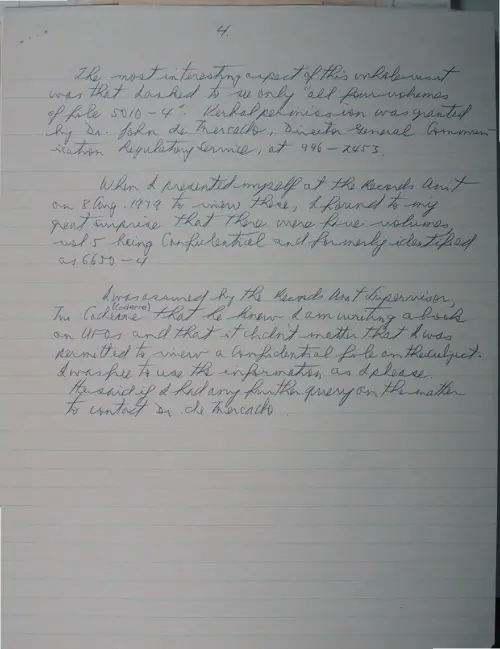 4.
The most interesting aspect of this whole visit
was that I asked to see only "all four volumes
of file 5010-4". Verbal permission was granted
by Dr. John de Mercado, Director General Commun-
ication Regulatory Service, at 996-2453.
When I presented myself at the Records Unit
on 8 Aug. 1979 to view these, I found to my
great surprise that there were five volumes,
vol 5 being Confidential and formerly identified
as 6650-4
I was assured by the Records Unit Supervisor,
that he knew I am writing a book
on UFOs and that it didn't matter that I was
permitted to view a Confidential file on the subject.
I was free to use the information as I please.
He said if I had any further query on the matter
to contact Dr. de Mercado.